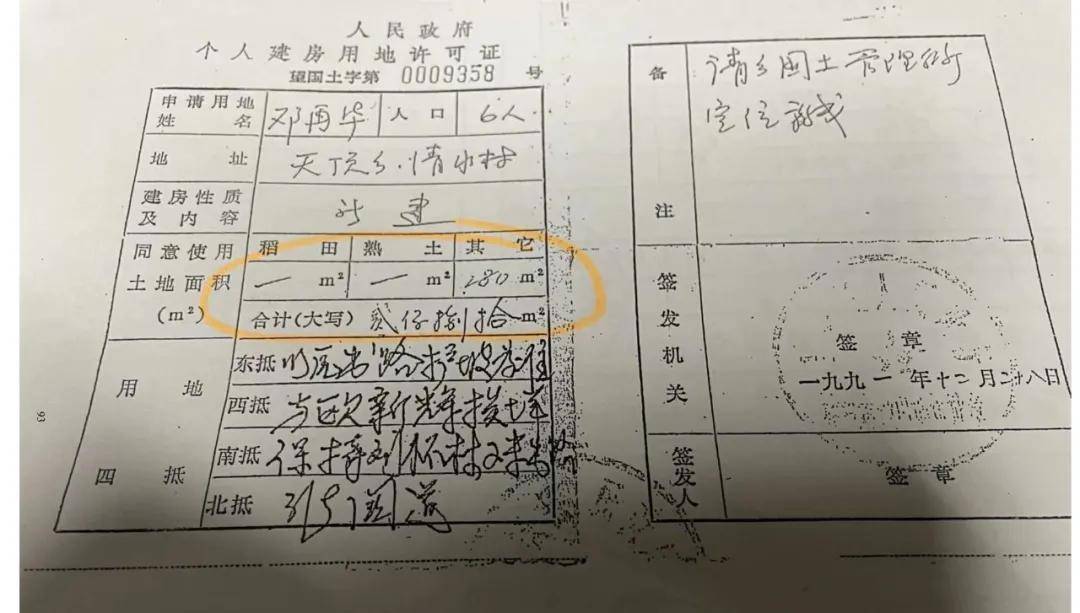 人民政府
个人建房用地许可证
望国土字第 0009358 号
申请用地
姓名 邓再华 人口 6人
地址 天顶乡·清水村
建房性质
及内容 新建
同意使用 稻田 熟土 其它
土地面积 一 m² 一 m² 280 m²
(m²) 合计(大写) 贰佰捌拾 m²
用地
四抵
东抵
西抵 与欧新辉
南抵
北抵
93
备注
请乡国土管理所
定位
签发机关
签章
一九九一年十二月二十八日
签发人
签章